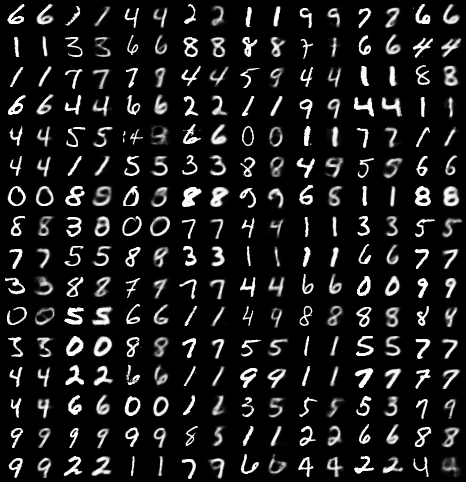 6 6 1 1 4 4 2 2 1 1 9 9 7 7 6 6
1 1 3 3 6 6 8 8 8 8 7 7 6 6 4 4
1 1 7 7 7 9 4 4 5 9 4 4 1 1 8 8
6 6 4 4 6 6 2 2 1 1 9 9 4 4 1 1
4 4 5 5 4 6 6 0 0 1 1 7 7 1 1
4 4 1 1 5 5 3 3 8 8 4 9 5 5 6 6
0 0 8 5 0 5 8 8 9 9 6 8 1 1 8 8
8 8 3 8 0 0 7 7 4 4 1 1 3 3 5 5
7 7 5 5 8 8 3 3 1 1 1 1 6 6 7 7
3 3 8 8 7 9 7 7 4 4 6 6 0 0 9 9
0 0 5 5 6 6 1 1 4 9 8 8 8 8 8 9
3 3 0 0 8 8 7 7 5 5 1 1 5 5 7 7
4 4 2 2 6 6 1 1 9 9 1 1 7 7 7 7
4 4 6 6 0 0 1 1 3 5 5 5 5 3 7 9
9 9 9 9 9 9 8 5 1 1 2 2 6 6 8 8
9 9 2 2 1 1 7 9 6 0 4 4 2 2 4